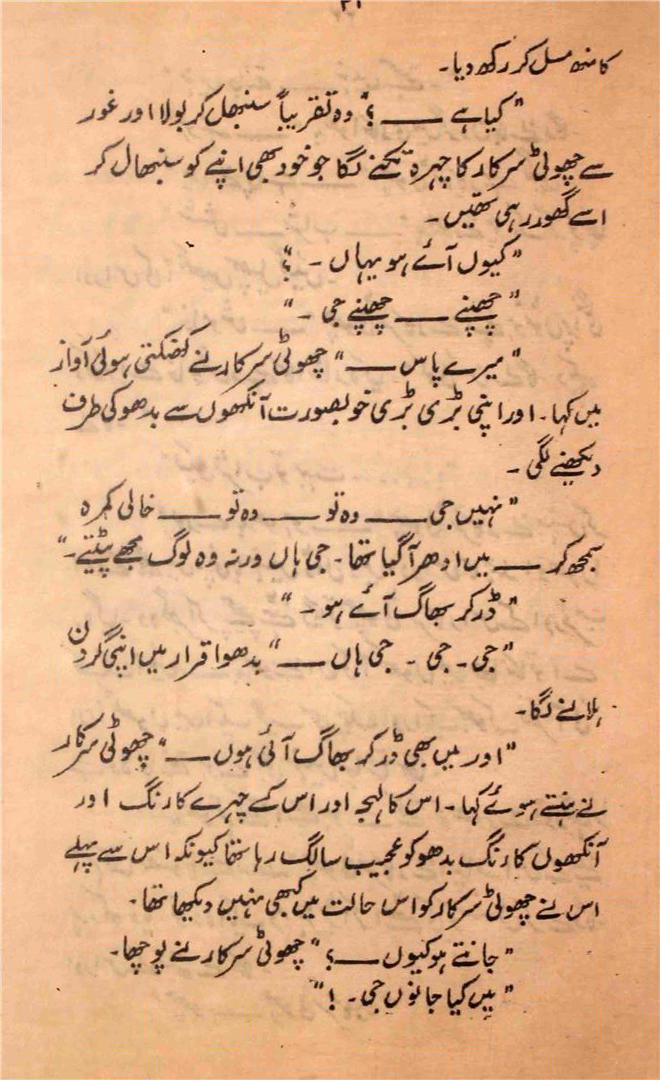 ۳۱
کا منھ مسل کر رکھ دیا۔
"کیا ہے ــــ؟" وہ تقریباً سنبھل کر بولا اور غور
سے چھوٹی سرکار کا چہرہ تکنے لگا جو خود بھی اپنے کو سنبھال کر
اسے گھور رہی تھیں۔
"کیوں آئے ہو یہاں۔ ؟"
"چھپنے ــــ چھپنے جی۔"
"میرے پاس ــــ" چھوٹی سرکار نے کھنکتی ہوئی آواز
میں کہا۔ اور اپنی بڑی بڑی خوبصورت آنکھوں سے بدھو کی طرف
دیکھنے لگی۔
"نہیں جی ــــ وہ تو ــــ وہ تو ــــ خالی کمرہ
سمجھ کر ــــ میں ادھر آگیا تھا۔ جی ہاں ورنہ وہ لوگ مجھے پیٹتے۔"
"ڈر کر بھاگ آئے ہو۔"
"جی۔ جی۔ جی ہاں ــــ" بدھو اقرار میں اپنی گردن
ہلانے لگا۔
"اور میں بھی ڈر کر بھاگ آئی ہوں ــــ" چھوٹی سرکار
نے ہنستے ہوئے کہا۔ اس کا لہجہ اور اس کے چہرے کا رنگ اور
آنکھوں کا رنگ بدھو کو عجیب سا لگ رہا تھا کیونکہ اس سے پہلے
اس نے چھوٹی سرکار کو اس حالت میں کبھی نہیں دیکھا تھا۔
"جانتے ہو کیوں ــــ؟" چھوٹی سرکار نے پوچھا۔
"میں کیا جانوں جی۔ !"